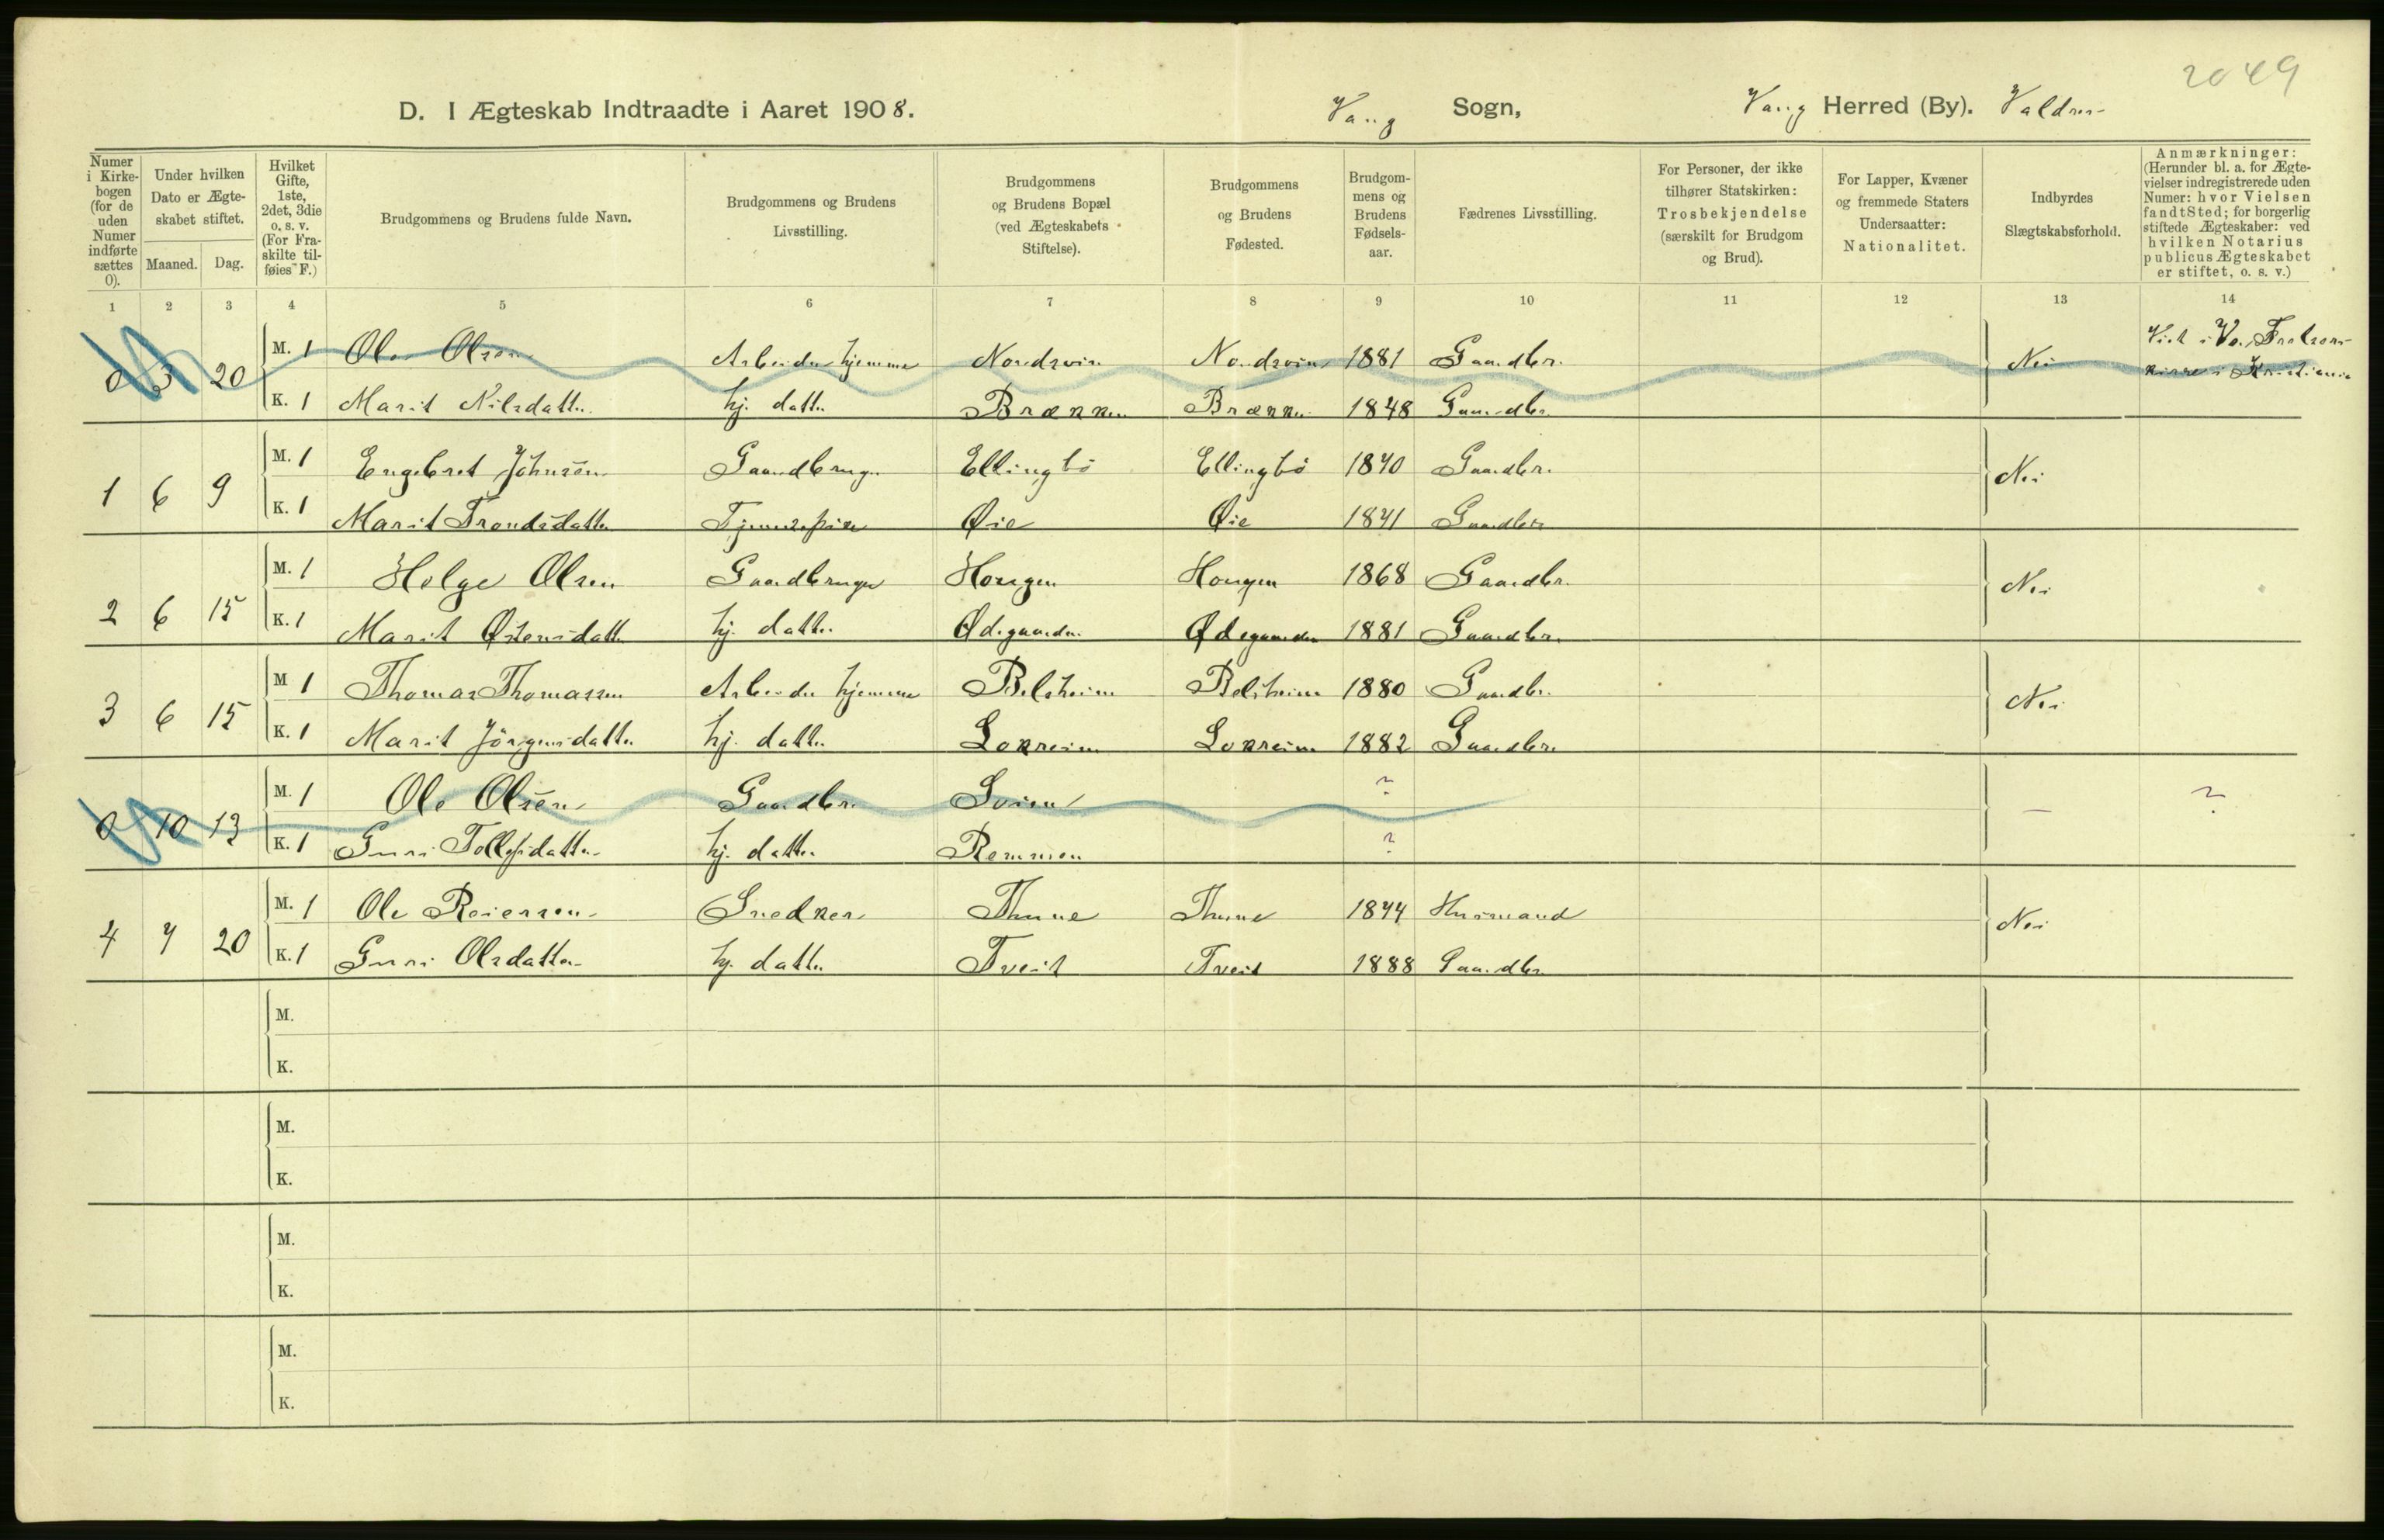 2049
D. I Ægteskab Indtraadte i Aaret 1908. Vang Sogn, Vang Herred (By). Valdres
Numer i Kirkebogen (for de uden Numer indførte sættes 0).
Under hvilken Dato er Ægteskabet stiftet.
Maaned. Dag.
Hvilket Gifte, 1ste, 2det, 3die o. s. v. (For Fraskilte tilføies F.)
Brudgommens og Brudens fulde Navn.
Brudgommens og Brudens Livsstilling.
Brudgommens og Brudens Bopæl (ved Ægteskabets Stiftelse).
Brudgommens og Brudens Fødested.
Brudgommens og Brudens Fødselsaar.
Fædrenes Livsstilling.
For Personer, der ikke tilhører Statskirken: Trosbekjendelse (særskilt for Brudgom og Brud).
For Lapper, Kvæner og fremmede Staters Undersaatter: Nationalitet.
Indbyrdes Slægtskabsforhold.
Anmærkninger: (Herunder bl. a. for Ægtevielser indregistrerede uden Numer: hvor Vielsen fandt Sted; for borgerlig stiftede Ægteskaber: ved hvilken Notarius publicus Ægteskabet er stiftet, o. s. v.)
1 2 3 4 5 6 7 8 9 10 11 12 13 14
0 3 20 M. 1 Ole Olsen Arbeider hjemme Nordsvin Nordsvin 1881 Gaardbr. Nei Viet i Vor Frelsers
K. 1 Marit Nilsdatter hj. datter Brækken Brækken 1848 Gaardbr. kirke i Kristiania
1 6 9 M. 1 Engebret Johnsen Gaardbruger Ellingbö Ellingbö 1840 Gaardbr. Nei
K. 1 Marit Trondsdatter Tjenestepike Øie Øie 1841 Gaardbr.
2 6 15 M. 1 Helge Olsen Gaardbruger Hougen Hougen 1868 Gaardbr. Nei
K. 1 Marit Østensdatter hj. datter Ødegaarden Ødegaarden 1881 Gaardbr.
3 6 15 M 1 Thomas Thomassen Arbeider hjemme Belsheim Belsheim 1880 Gaardbr. Nei
K. 1 Marit Jörgensdatter hj. datter Lokreim Lokreim 1882 Gaardbr.
0 10 13 M. 1 Ole Olsen Gaardbr. Svien ? — ?
K. 1 Guri Tollefsdatter hj. datter Remmen ?
4 7 20 M. 1 Ole Reiersen Snedker Thune Thune 1844 Husmand Nei
K. 1 Guri Olsdatter hj. datter Tveit Tveit 1888 Gaardbr.
M.
K.
M.
K.
M.
K.
M.
K.